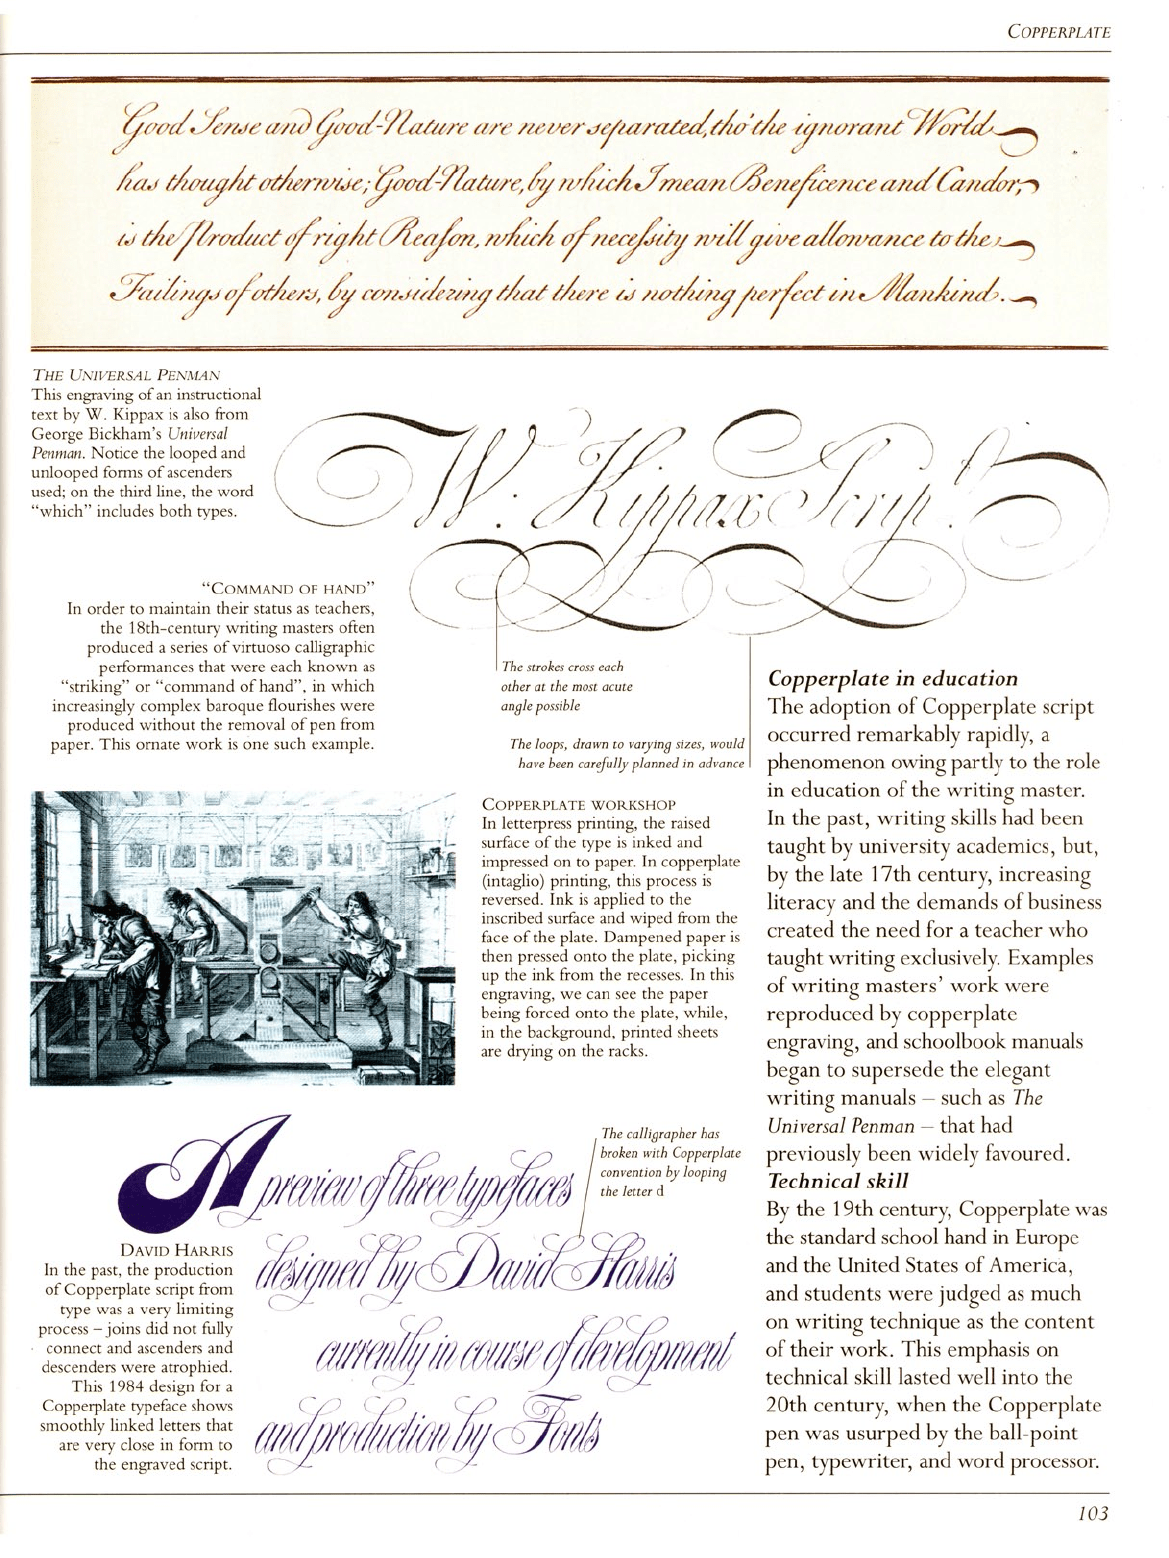 COPPERPLATE
Good Sense and Good-Nature are never separated, tho' the ignorant World
has thought otherwise; Good-Nature, by which I mean Beneficence and Candor,
is the Product of right Reaſon, which of neceſsity will give allowance to the
Failings of others, by considering that there is nothing perfect in Mankind.
THE UNIVERSAL PENMAN
This engraving of an instructional
text by W. Kippax is also from
George Bickham's Universal
Penman. Notice the looped and
unlooped forms of ascenders
used; on the third line, the word
“which” includes both types.
W. Kippax Scrip.t
“COMMAND OF HAND”
In order to maintain their status as teachers,
the 18th-century writing masters often
produced a series of virtuoso calligraphic
performances that were each known as
“striking” or “command of hand”, in which
increasingly complex baroque flourishes were
produced without the removal of pen from
paper. This ornate work is one such example.
The strokes cross each
other at the most acute
angle possible
The loops, drawn to varying sizes, would
have been carefully planned in advance
COPPERPLATE WORKSHOP
In letterpress printing, the raised
surface of the type is inked and
impressed on to paper. In copperplate
(intaglio) printing, this process is
reversed. Ink is applied to the
inscribed surface and wiped from the
face of the plate. Dampened paper is
then pressed onto the plate, picking
up the ink from the recesses. In this
engraving, we can see the paper
being forced onto the plate, while,
in the background, printed sheets
are drying on the racks.
A preview of three typefaces
designed by David Harris
currently in course of development
and production by Fonts
The calligrapher has
broken with Copperplate
convention by looping
the letter d
DAVID HARRIS
In the past, the production
of Copperplate script from
type was a very limiting
process – joins did not fully
connect and ascenders and
descenders were atrophied.
This 1984 design for a
Copperplate typeface shows
smoothly linked letters that
are very close in form to
the engraved script.
Copperplate in education
The adoption of Copperplate script
occurred remarkably rapidly, a
phenomenon owing partly to the role
in education of the writing master.
In the past, writing skills had been
taught by university academics, but,
by the late 17th century, increasing
literacy and the demands of business
created the need for a teacher who
taught writing exclusively. Examples
of writing masters' work were
reproduced by copperplate
engraving, and schoolbook manuals
began to supersede the elegant
writing manuals – such as The
Universal Penman – that had
previously been widely favoured.
Technical skill
By the 19th century, Copperplate was
the standard school hand in Europe
and the United States of America,
and students were judged as much
on writing technique as the content
of their work. This emphasis on
technical skill lasted well into the
20th century, when the Copperplate
pen was usurped by the ball-point
pen, typewriter, and word processor.
103